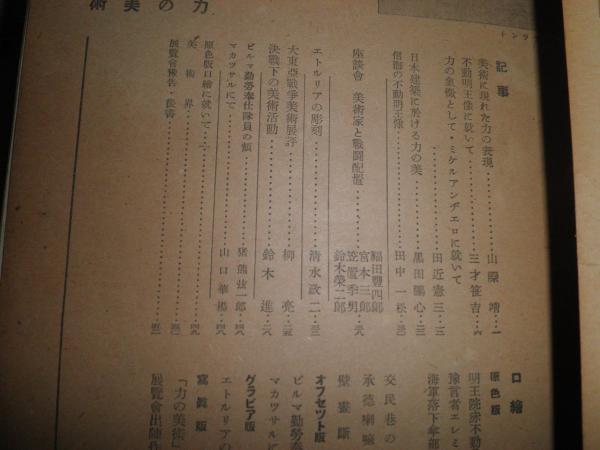 力の美術
記事
美術に現れた力の表現……山際靖…一
不動明王像に就いて……三才笹吉…六
力の象徴として・ミケルアンヂエロに就いて
田近憲三…三
日本建築に於ける力の美……黒田鵬心…
信海の不動明王像……田中一松…
座談会 美術家と戦闘配置
福田豊四郎
宮本三郎
笠置季男
鈴木栄二郎
エトルリアの彫刻……清水政二…
大東亞戦争美術展評……柳亮…
決戦下の美術活動……鈴木進…
ビルマ勤労奉仕隊員の顔……猪熊弦一郎…
マカツサルにて……山口華楊…
原色版口絵に就いて……
美術界……
展覧会予告・後書……
口絵
原色版
明王院赤不動
預言者エレミ
海軍落下傘部
交民巷の
承徳喇嘛
壁画断
オフセツト版
ビルマ勤労奉
マカツサルに
グラビア版
エトルリアの
写真版
「力の美術」
展覧会出陳作